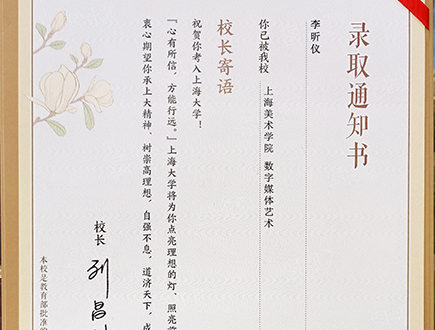 录取通知书
李昕仪
你已被我校 上海美术学院 数字媒体艺术
校长寄语
祝贺你考入上海大学！
「心有所信，方能行远。」上海大学将为你点亮理想的灯、照亮
衷心期望你承上大精神、树崇高理想，自强不息，道济天下，成
校长 刘昌
本校是教育部批准的